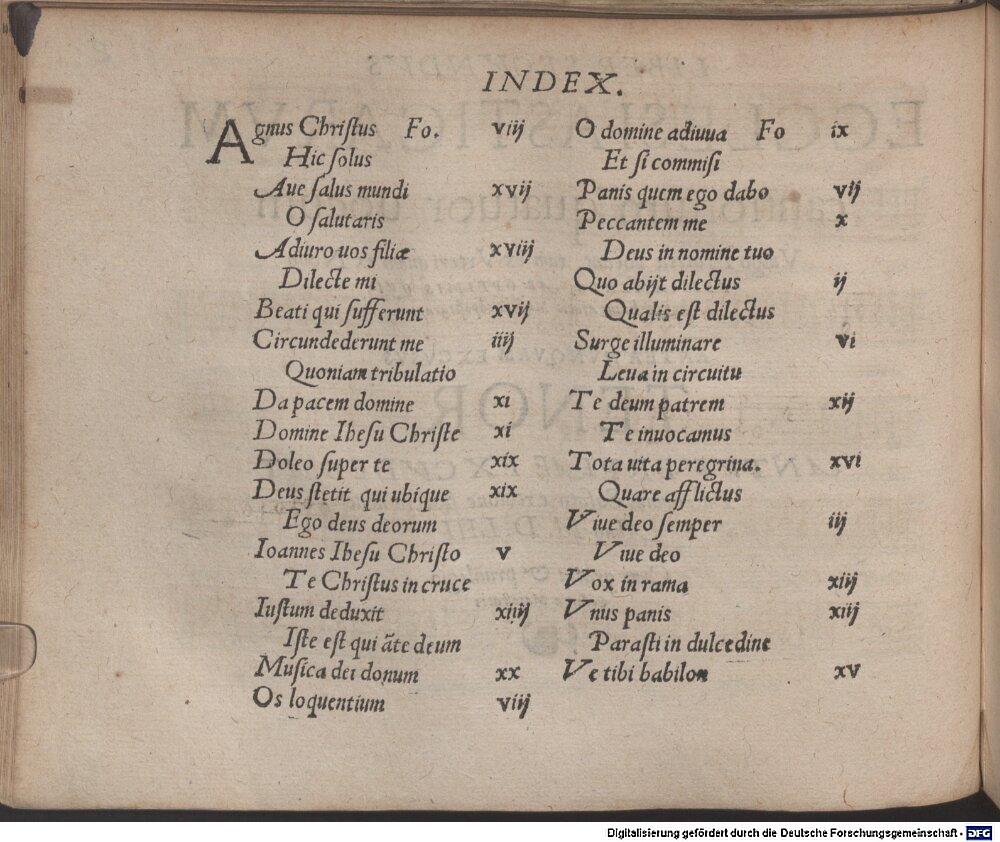 INDEX.
Agnus Chriſtus Fo. viij
Hic ſolus
Aue ſalus mundi xvij
O ſalutaris
Adiuro uos filiæ xviij
Dilecte mi
Beati qui ſufferunt xvij
Circundederunt me iiij
Quoniam tribulatio
Da pacem domine xi
Domine Iheſu Chriſte xi
Doleo ſuper te xix
Deus ſtetit qui ubique xix
Ego deus deorum
Ioannes Iheſu Chriſto v
Te Chriſtus in cruce
Iuſtum deduxit xiiij
Iſte eſt qui āte deum
Muſica dei donum xx
Os loquentium viij
O domine adiuua Fo ix
Et ſi commiſi
Panis quem ego dabo vij
Peccantem me x
Deus in nomine tuo
Quo abijt dilectus ij
Qualis eſt dilectus
Surge illuminare vi
Leua in circuitu
Te deum patrem xij
Te inuocamus
Tota uita peregrina. xvi
Quare afflictus
Viue deo ſemper iij
Viue deo
Vox in rama xiij
Vnus panis xiij
Paraſti in dulcedine
Ve tibi babilon xv
Digitalisierung gefördert durch die Deutsche Forschungsgemeinschaft - DFG